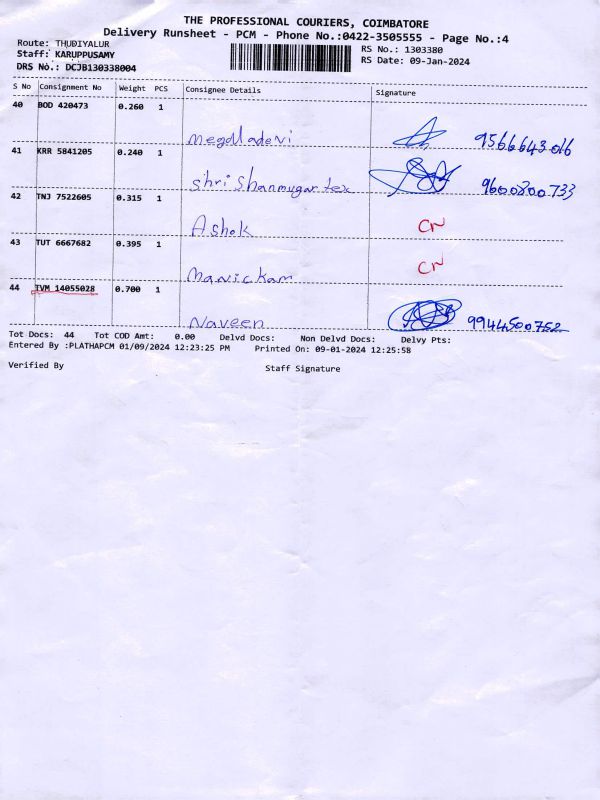 THE PROFESSIONAL COURIERS, COIMBATORE
Delivery Runsheet - PCM - Phone No.:0422-3505555 - Page No.:4
Route: THUDIYALUR RS No.: 1303380
Staff: KARUPPUSAMY RS Date: 09-Jan-2024
DRS No.: DCJB130338004
S No Consignment No Weight PCS Consignee Details Signature
40 BOD 420473 0.260 1
9566643016
41 KRR 5841205 0.240 1
Shri Shanmugar tex 9600800733
42 TNJ 7522605 0.315 1
Ashok CN
43 TUT 6667682 0.395 1
Manickam CN
44 TVM 14055028 0.700 1
Naveen 9944500752
Tot Docs: 44 Tot COD Amt: 0.00 Delvd Docs: Non Delvd Docs: Delvy Pts:
Entered By :PLATHAPCM 01/09/2024 12:23:25 PM Printed On: 09-01-2024 12:25:58
Verified By Staff Signature